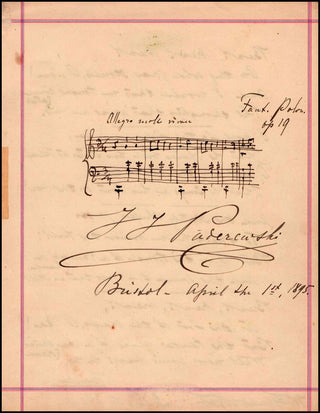 Fant. Polon.
op 19
Allegro molto vivace
I J Paderewski
Bristol - April the 1st, 1895.